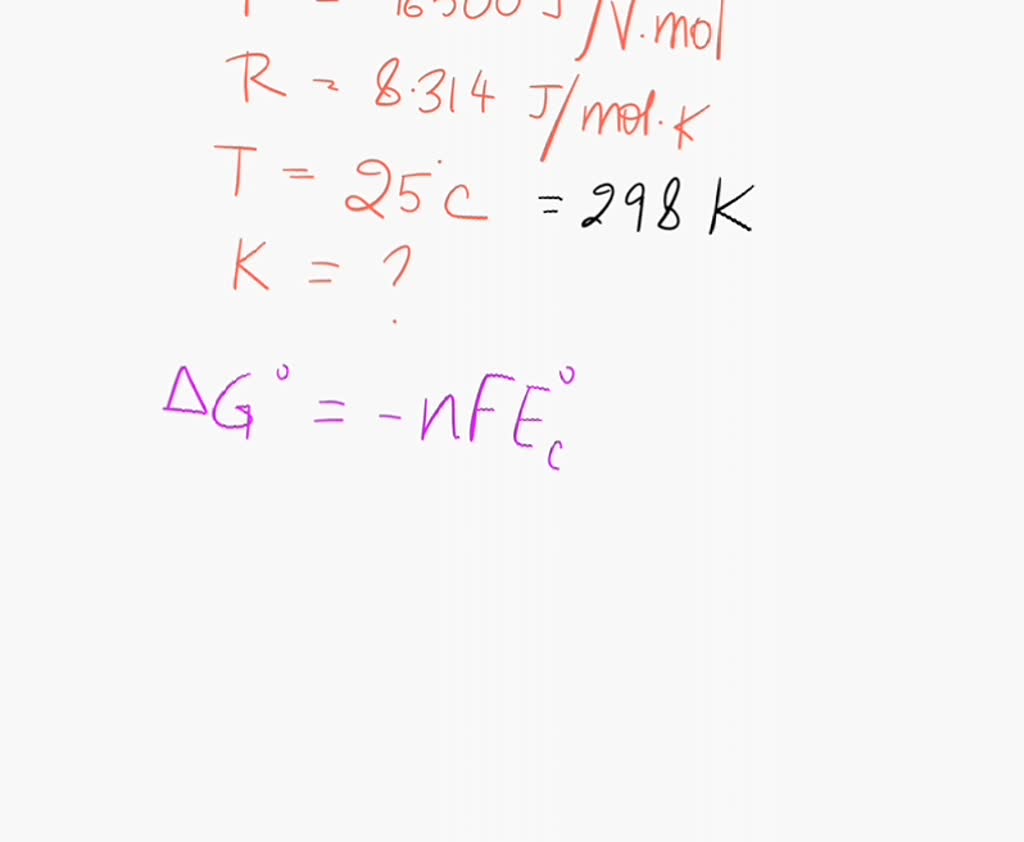 J/V.mol
R = 8.314 J/mol.K
T = 25°C = 298 K
K = ?
ΔG° = -nFE°c